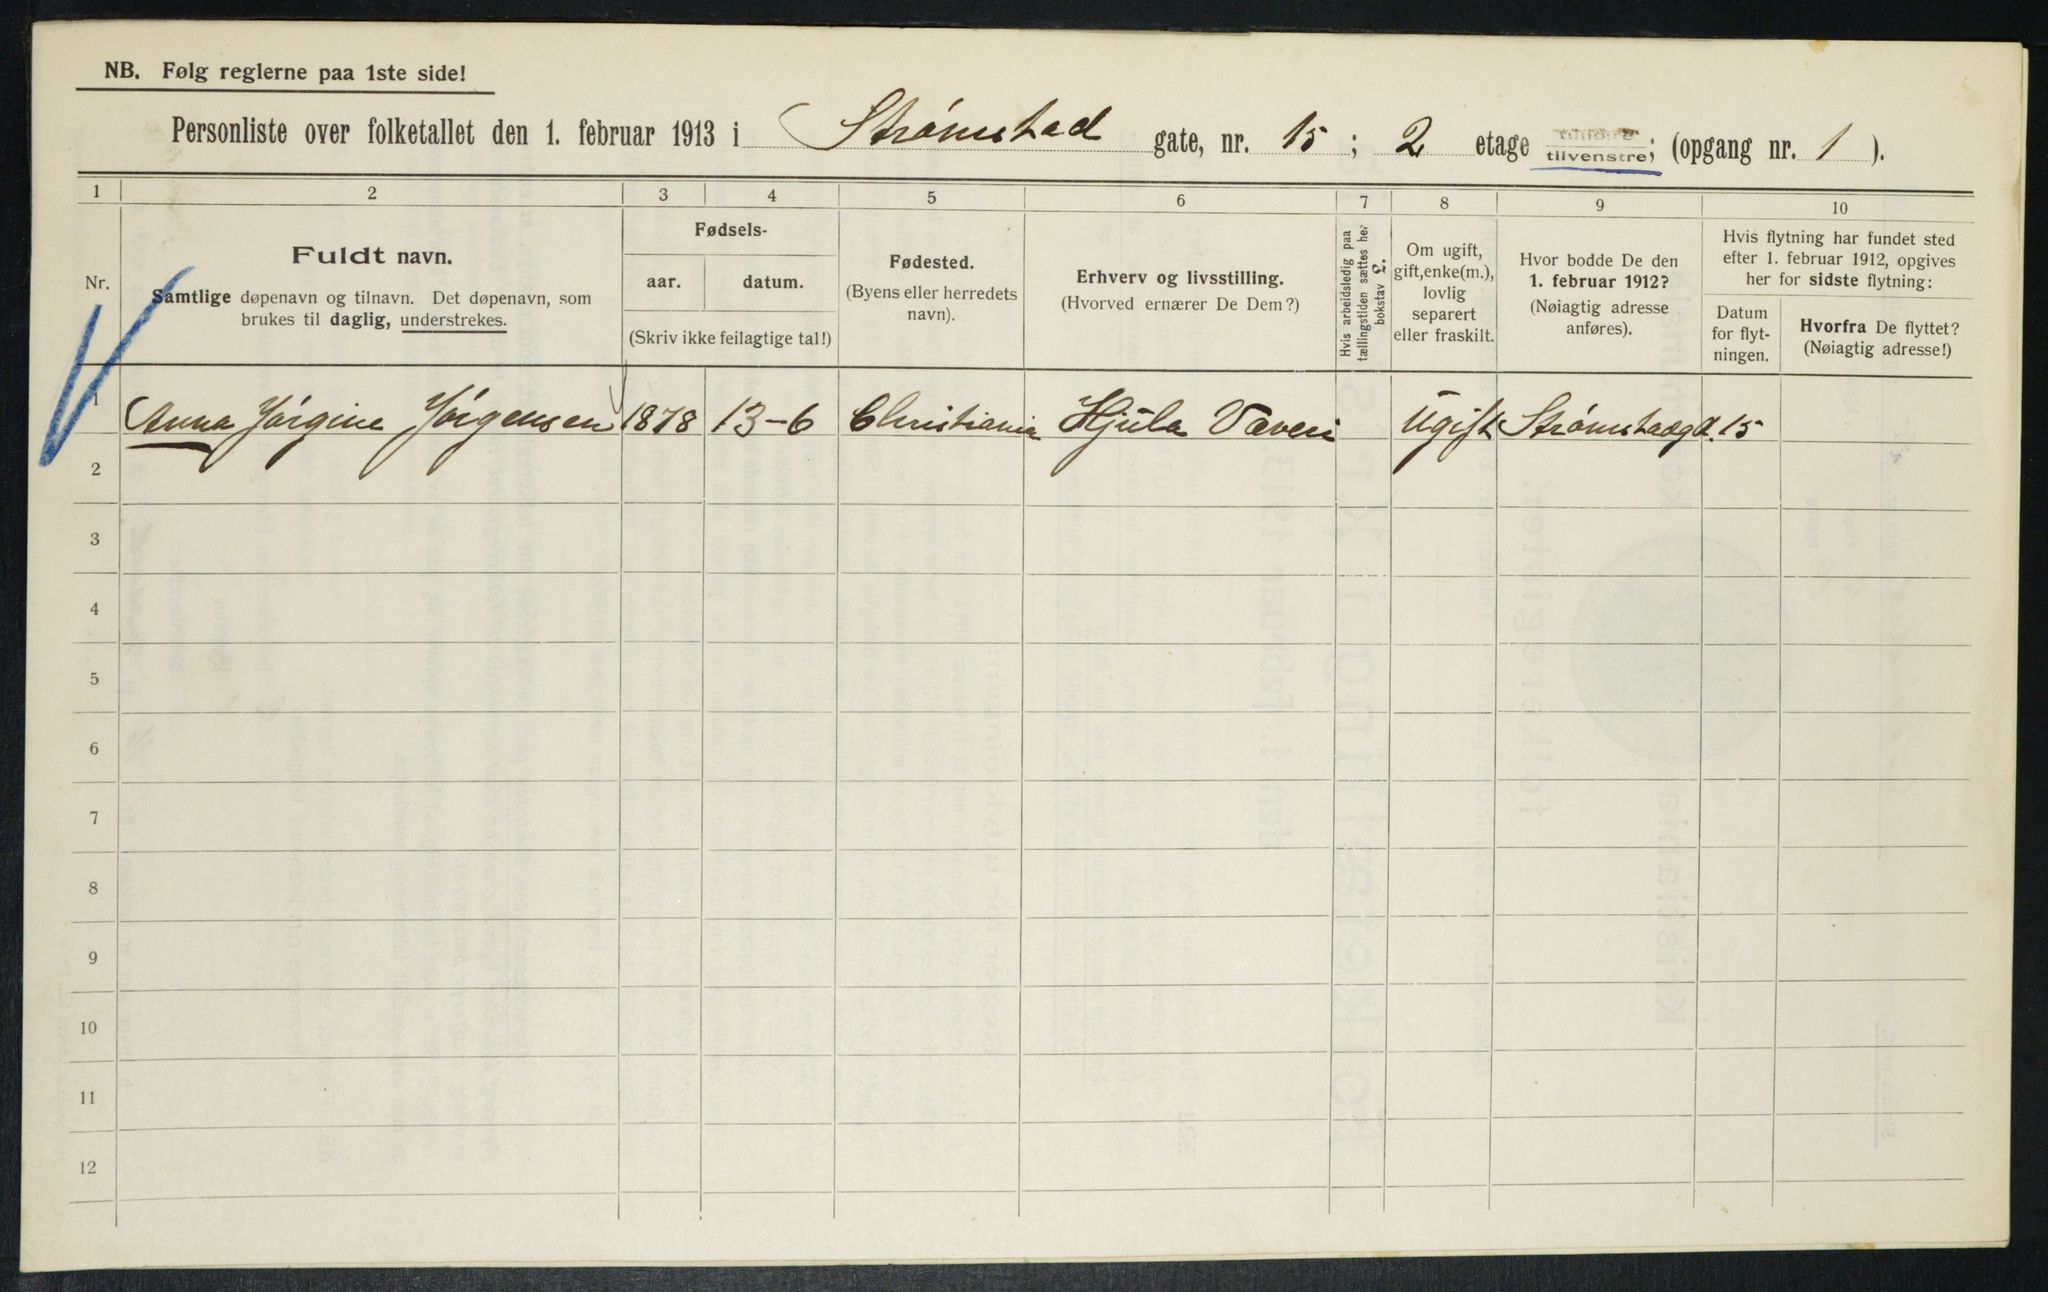 NB. Følg reglerne paa 1ste side!
Personliste over folketallet den 1. februar 1913 i Strømstad gate, nr. 15 ; 2 etage tilvenstre; (opgang nr. 1 ).
1 2 3 4 5 6 7 8 9 10
Nr.
Fuldt navn.
Samtlige døpenavn og tilnavn. Det døpenavn, som
brukes til daglig, understrekes.
Fødsels-
aar. datum.
(Skriv ikke feilagtige tal!)
Fødested.
(Byens eller herredets
navn).
Erhverv og livsstilling.
(Hvorved ernærer De Dem?)
Hvis arbeidsledig paa
tællingstiden sættes her
bokstav L.
Om ugift,
gift, enke(m.),
lovlig
separert
eller fraskilt.
Hvor bodde De den
1. februar 1912?
(Nøiagtig adresse
anføres).
Hvis flytning har fundet sted
efter 1. februar 1912, opgives
her for sidste flytning:
Datum
for flyt-
ningen.
Hvorfra De flyttet?
(Nøiagtig adresse!)
1 Anna Jørgine Jørgensen 1878 13-6 Christiania Hjula Væveri Ugift Strømstadgd. 15
2
3
4
5
6
7
8
9
10
11
12